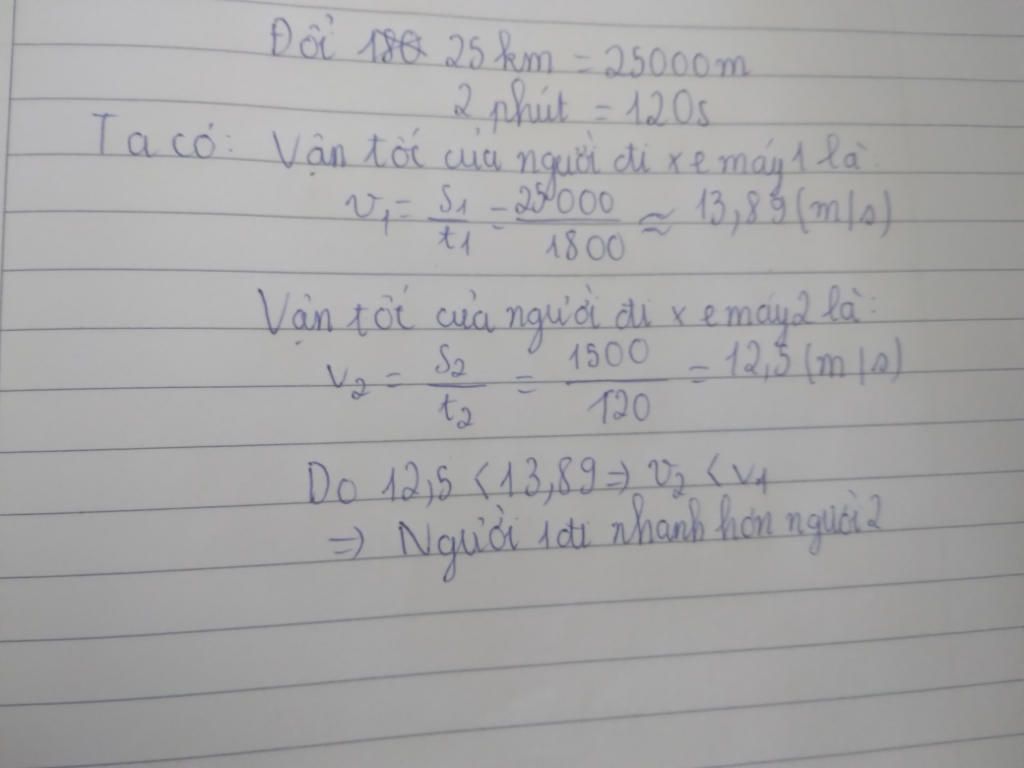 Đổi 180 25km = 25000m
2 phút = 120s
Ta có: Vận tốc của người đi xe máy 1 là:
v₁ = S₁/t₁ = 25000/1800 ≈ 13,89 (m/s)
Vận tốc của người đi xe máy 2 là:
v₂ = S₂/t₂ = 1500/120 = 12,5 (m/s)
Do 12,5 < 13,89 => v₂ < v₁
=> Người 1 đi nhanh hơn người 2